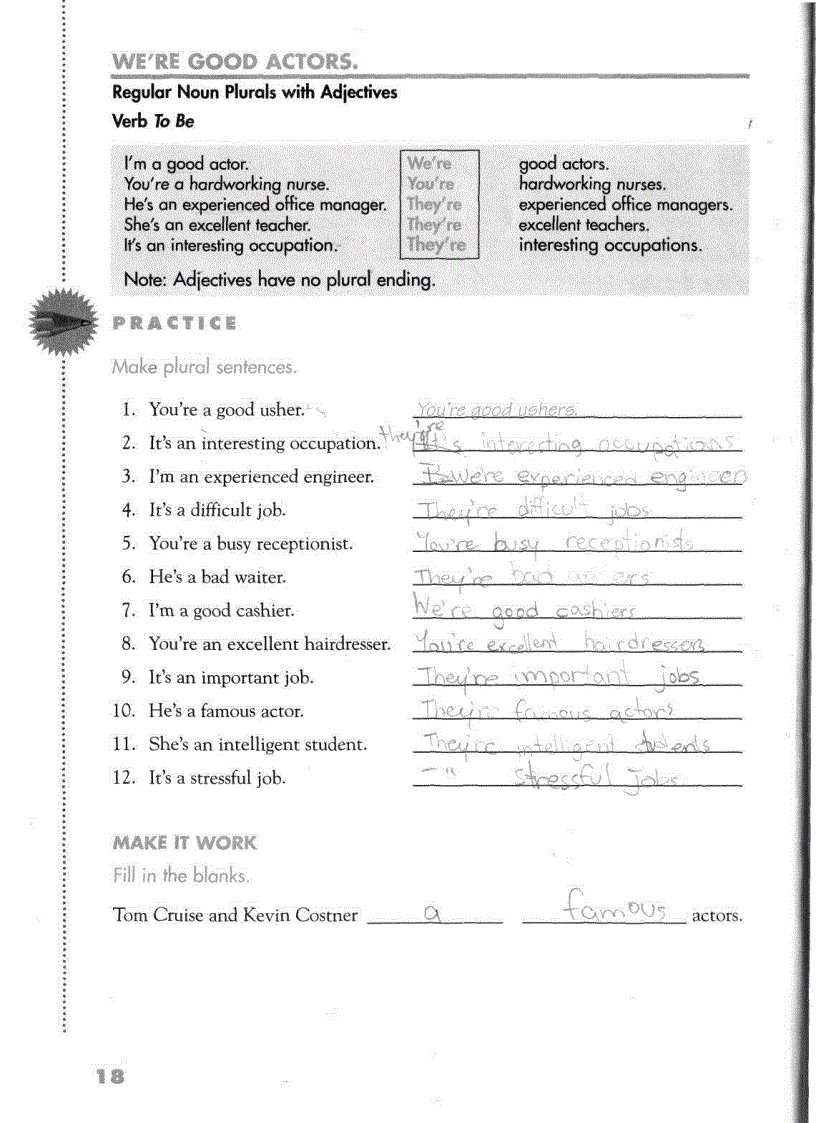 WE'RE GOOD ACTORS.
Regular Noun Plurals with Adjectives
Verb To Be
I'm a good actor. We're good actors.
You're a hardworking nurse. You're hardworking nurses.
He's an experienced office manager. They're experienced office managers.
She's an excellent teacher. They're excellent teachers.
It's an interesting occupation. They're interesting occupations.
Note: Adjectives have no plural ending.
PRACTICE
Make plural sentences.
1. You're a good usher. You're good ushers.
2. It's an interesting occupation. they're It's interesting occupations
3. I'm an experienced engineer. We're experienced engineers
4. It's a difficult job. They're difficult jobs
5. You're a busy receptionist. You're busy receptionists
6. He's a bad waiter. They're bad waiters
7. I'm a good cashier. We're good cashiers
8. You're an excellent hairdresser. You're excellent hairdressers
9. It's an important job. They're important jobs
10. He's a famous actor. They're famous actors
11. She's an intelligent student. They're intelligent students
12. It's a stressful job. —" stressful jobs
MAKE IT WORK
Fill in the blanks.
Tom Cruise and Kevin Costner a famous actors.
18